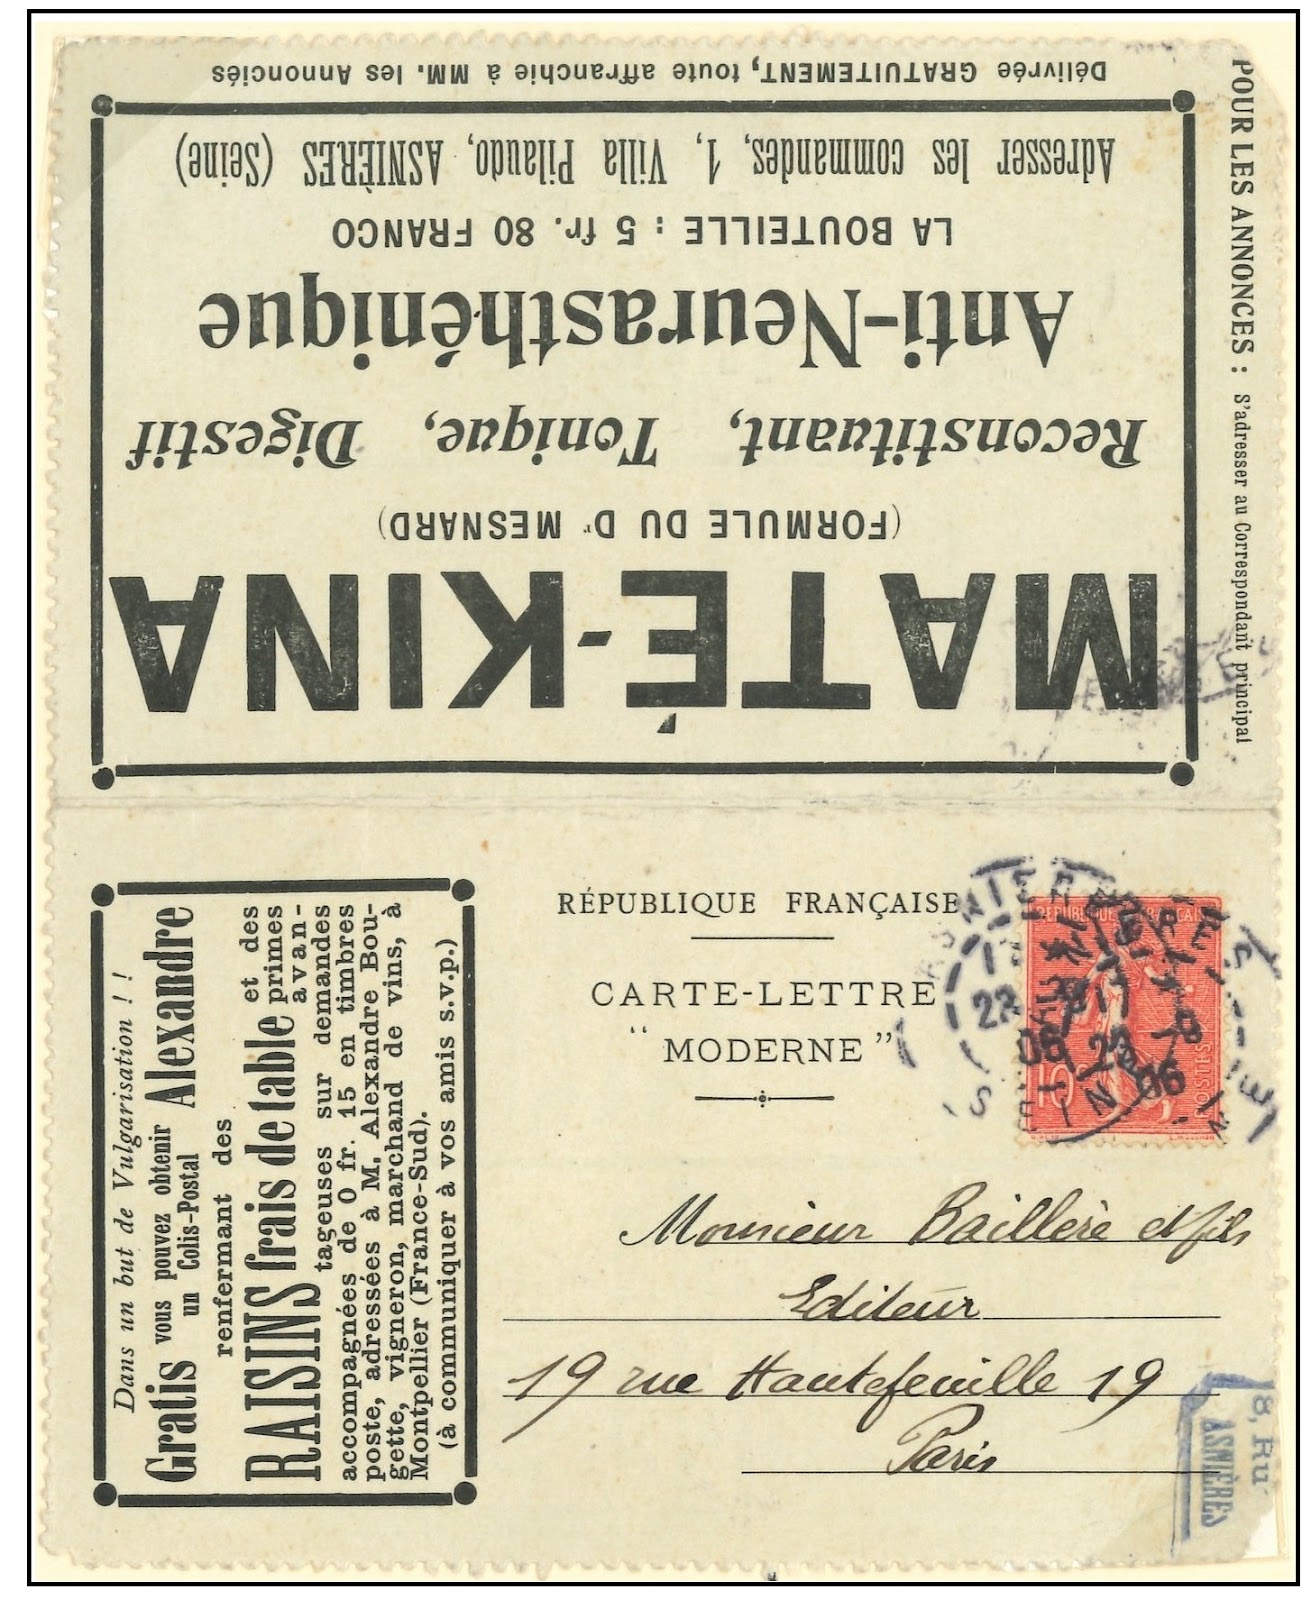 Délivrée GRATUITEMENT, toute affranchie à MM. les Annonciés
Adresser les commandes, 1, Villa Pilaudo, ASNIÈRES (Seine)
LA BOUTEILLE : 5 fr. 80 FRANCO
Anti-Neurasthénique
Reconstituant, Tonique, Digestif
(FORMULE DU Dr MESNARD)
MATÉ-KINA
POUR LES ANNONCES : S'adresser au Correspondant principal
Dans un but de Vulgarisation ! !
Gratis vous pouvez obtenir un Colis-Postal Alexandre
renfermant des
RAISINS frais de table et des primes avan-
tageuses sur demandes
accompagnées de 0 fr. 15 en timbres
poste, adressées à M. Alexandre Bou-
gette, vigneron, marchand de vins, à
Montpellier (France-Sud).
(à communiquer à vos amis s.v.p.)
RÉPUBLIQUE FRANÇAISE
CARTE-LETTRE
"MODERNE"
POSTES
ASNIERES
22
06
SEINE
Monsieur Baillère et fils
Editeur
19 rue Hautefeuille 19
Paris
8, Ru
ASNIÈRES